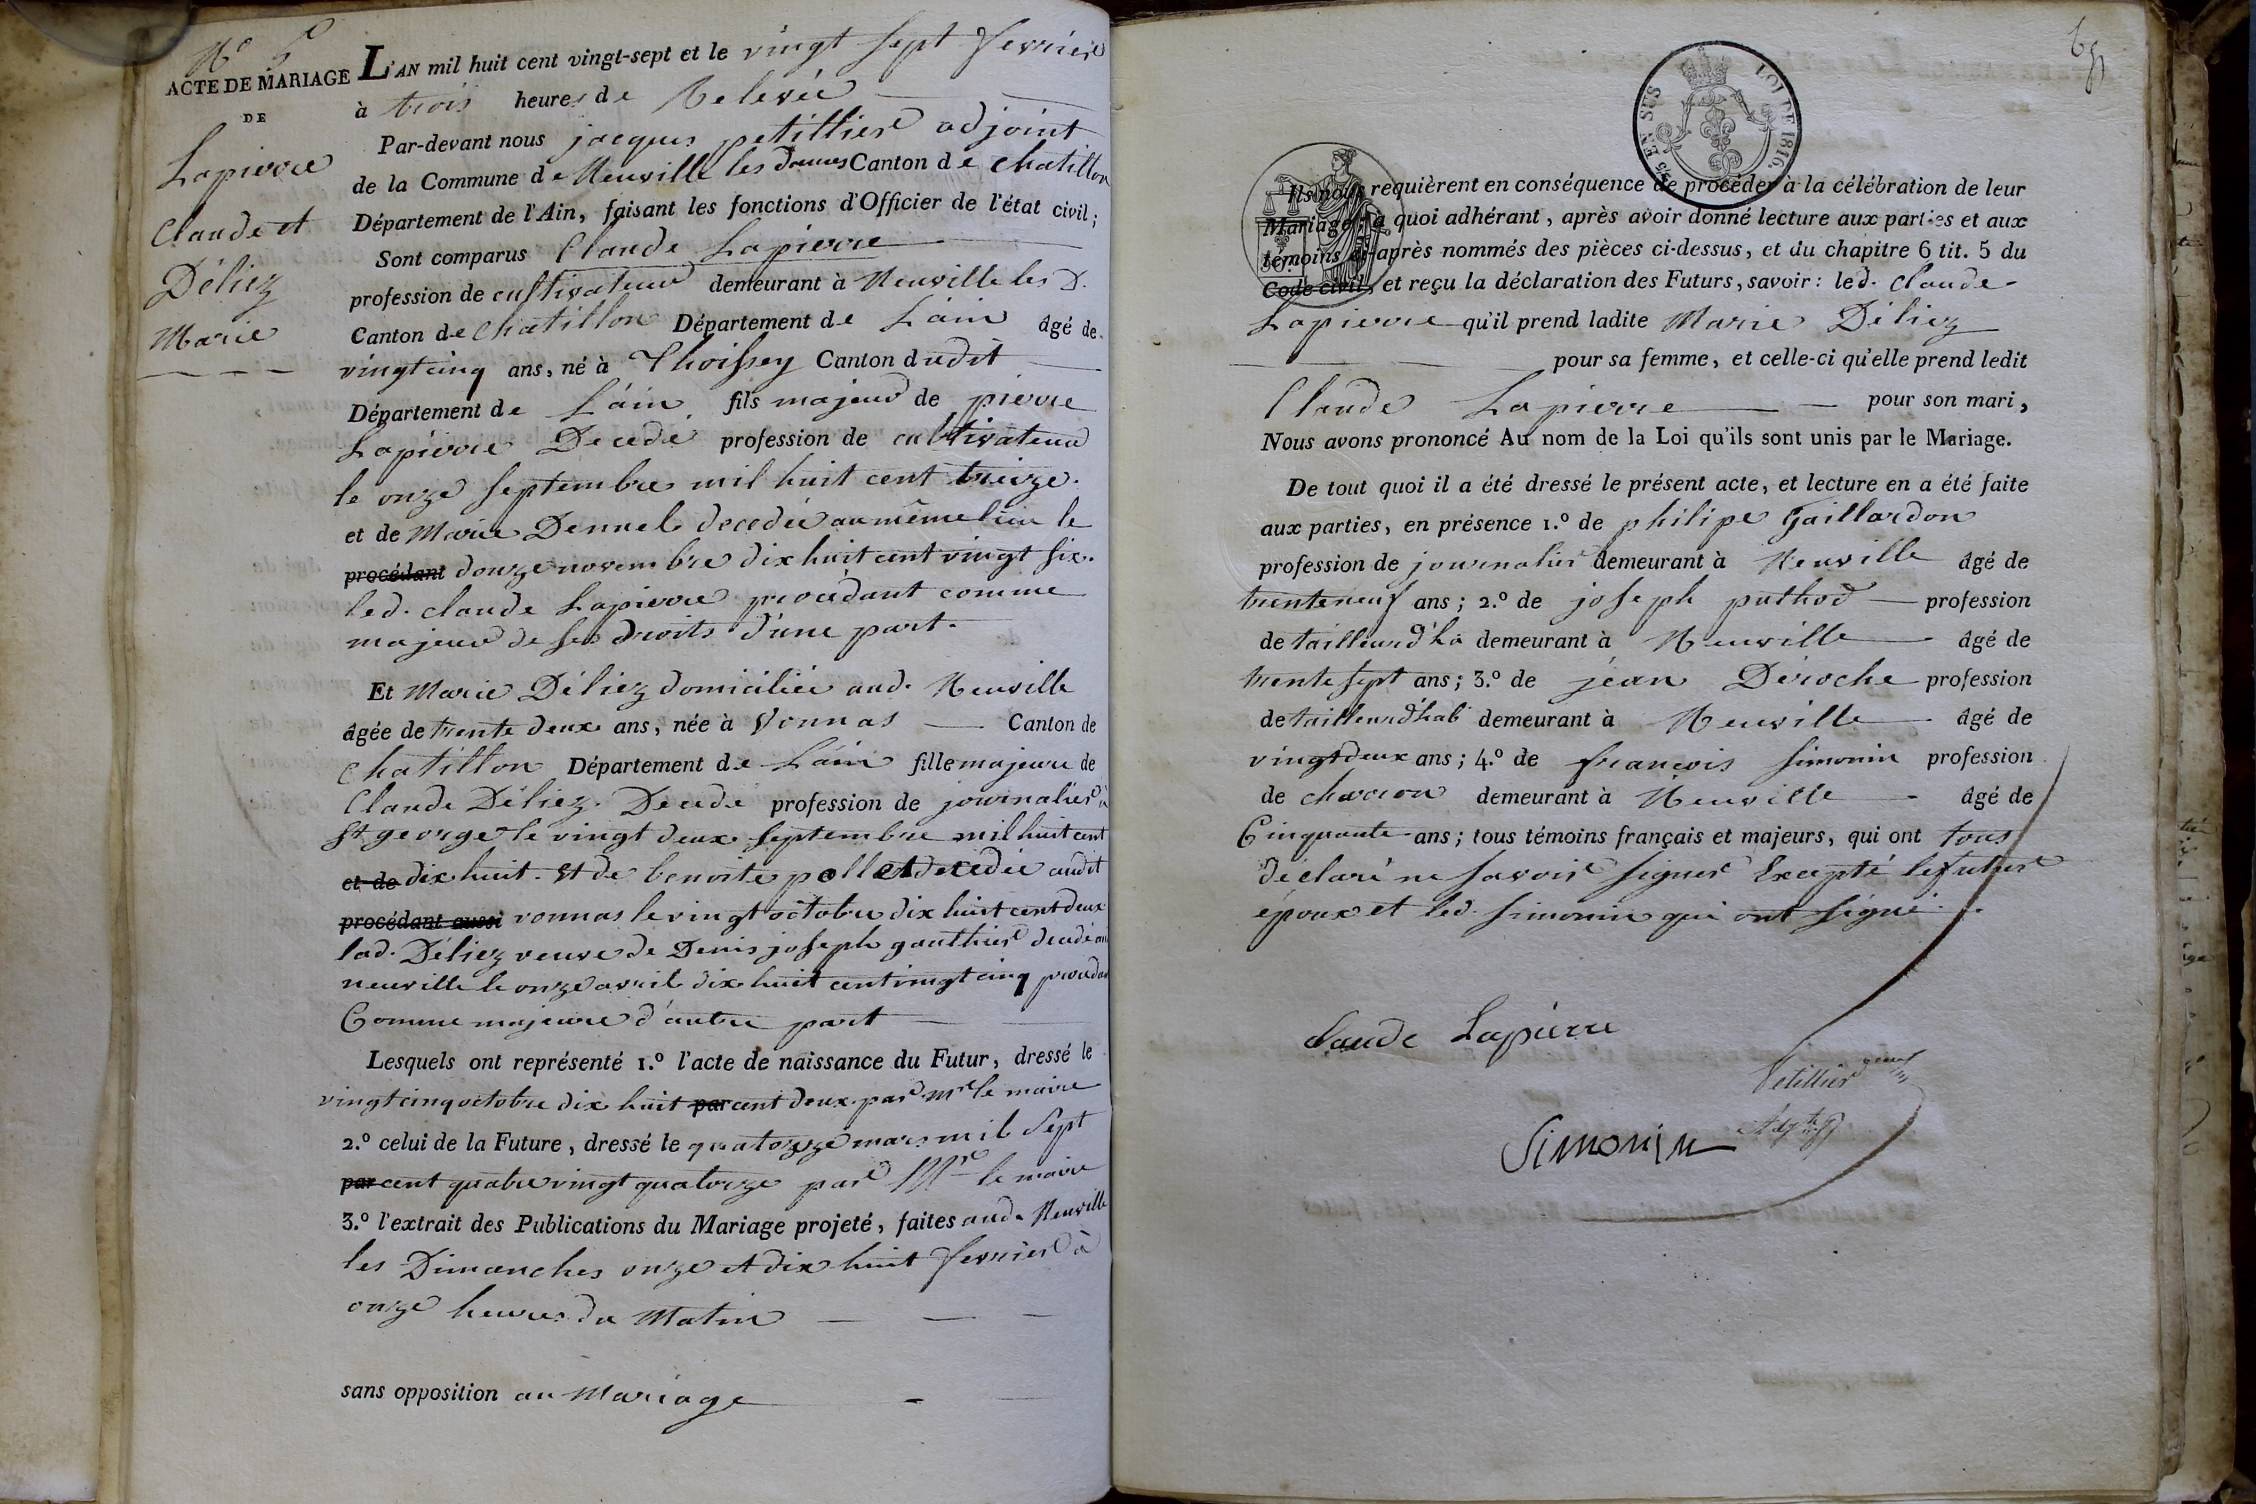 N° 5
ACTE DE MARIAGE
DE
Lapierre
Claude et
Déliez
Marie
L'AN mil huit cent vingt-sept et le vingt sept fevrier
à trois heures de Relevée
Par-devant nous jacques petillier adjoint
de la Commune de Neuville les dames Canton de chatillon
Département de l'Ain, faisant les fonctions d'Officier de l'état civil;
Sont comparus Claude Lapierre
profession de cultivateur demeurant à Neuville les D.
Canton de Chatillon Département de L'ain âgé de
vingt cinq ans, né à Thoissey Canton dudit
Département de L'ain fils majeur de pierre
Lapierre Decedé profession de cultivateur
le onze septembre mil huit cent treize.
et de Marie Dennel decedée au même lieu le
procédant douze novembre dix huit cent vingt six.
led. claude Lapierre procédant comme
majeur de ses droits d'une part.
Et Marie Déliez domiciliée aud. Neuville
âgée de trente deux ans, née à Vonnas Canton de
Chatillon Département de L'ain fille majeure de
Claude Déliez Decedé profession de journalier à
St george le vingt deux septembre mil huit cent
et de dix huit. et de benoite pollet decedée audit
procédant aussi vonnas le vingt octobre dix huit cent deux
lad. Déliez veuve de Denis joseph gauthier decedé au
neuville le onze avril dix huit cent vingt cinq procedant
Comme majeure d'autre part
Lesquels ont représenté 1.° l'acte de naissance du Futur, dressé le
vingt cinq octobre dix huit par cent deux par Mr le maire
2.° celui de la Future, dressé le quatorze mars mil sept
par cent quatre vingt quatorze par Mr le maire
3.° l'extrait des Publications du Mariage projeté, faites aud. Neuville
les Dimanches onze et dix huit fevrier à
onze heures du Matin
sans opposition au Mariage
5/5 EN SUS
LOI DE 1816.
Ils nous requièrent en conséquence de procéder à la célébration de leur
Mariage; à quoi adhérant, après avoir donné lecture aux parties et aux
témoins ci-après nommés des pièces ci-dessus, et du chapitre 6 tit. 5 du
Code civil, et reçu la déclaration des Futurs, savoir: led. Claude
Lapierre qu'il prend ladite Marie Déliez
pour sa femme, et celle-ci qu'elle prend ledit
Claude Lapierre pour son mari,
Nous avons prononcé Au nom de la Loi qu'ils sont unis par le Mariage.
De tout quoi il a été dressé le présent acte, et lecture en a été faite
aux parties, en présence 1.° de philipe Gaillardon
profession de journalier demeurant à Neuville âgé de
trente neuf ans; 2.° de joseph puthod profession
de tailleur d'ha demeurant à Neuville âgé de
trente sept ans; 3.° de jean Déroche profession
de tailleur d'hab demeurant à Neuville âgé de
vingt deux ans; 4.° de francois simonin profession
de charron demeurant à Neuville âgé de
Cinquante ans; tous témoins français et majeurs, qui ont tous
déclaré ne savoir signer Excepté le futur
époux et led. simonin qui ont signé.
Claude Lapierre
Petillier
Simonin